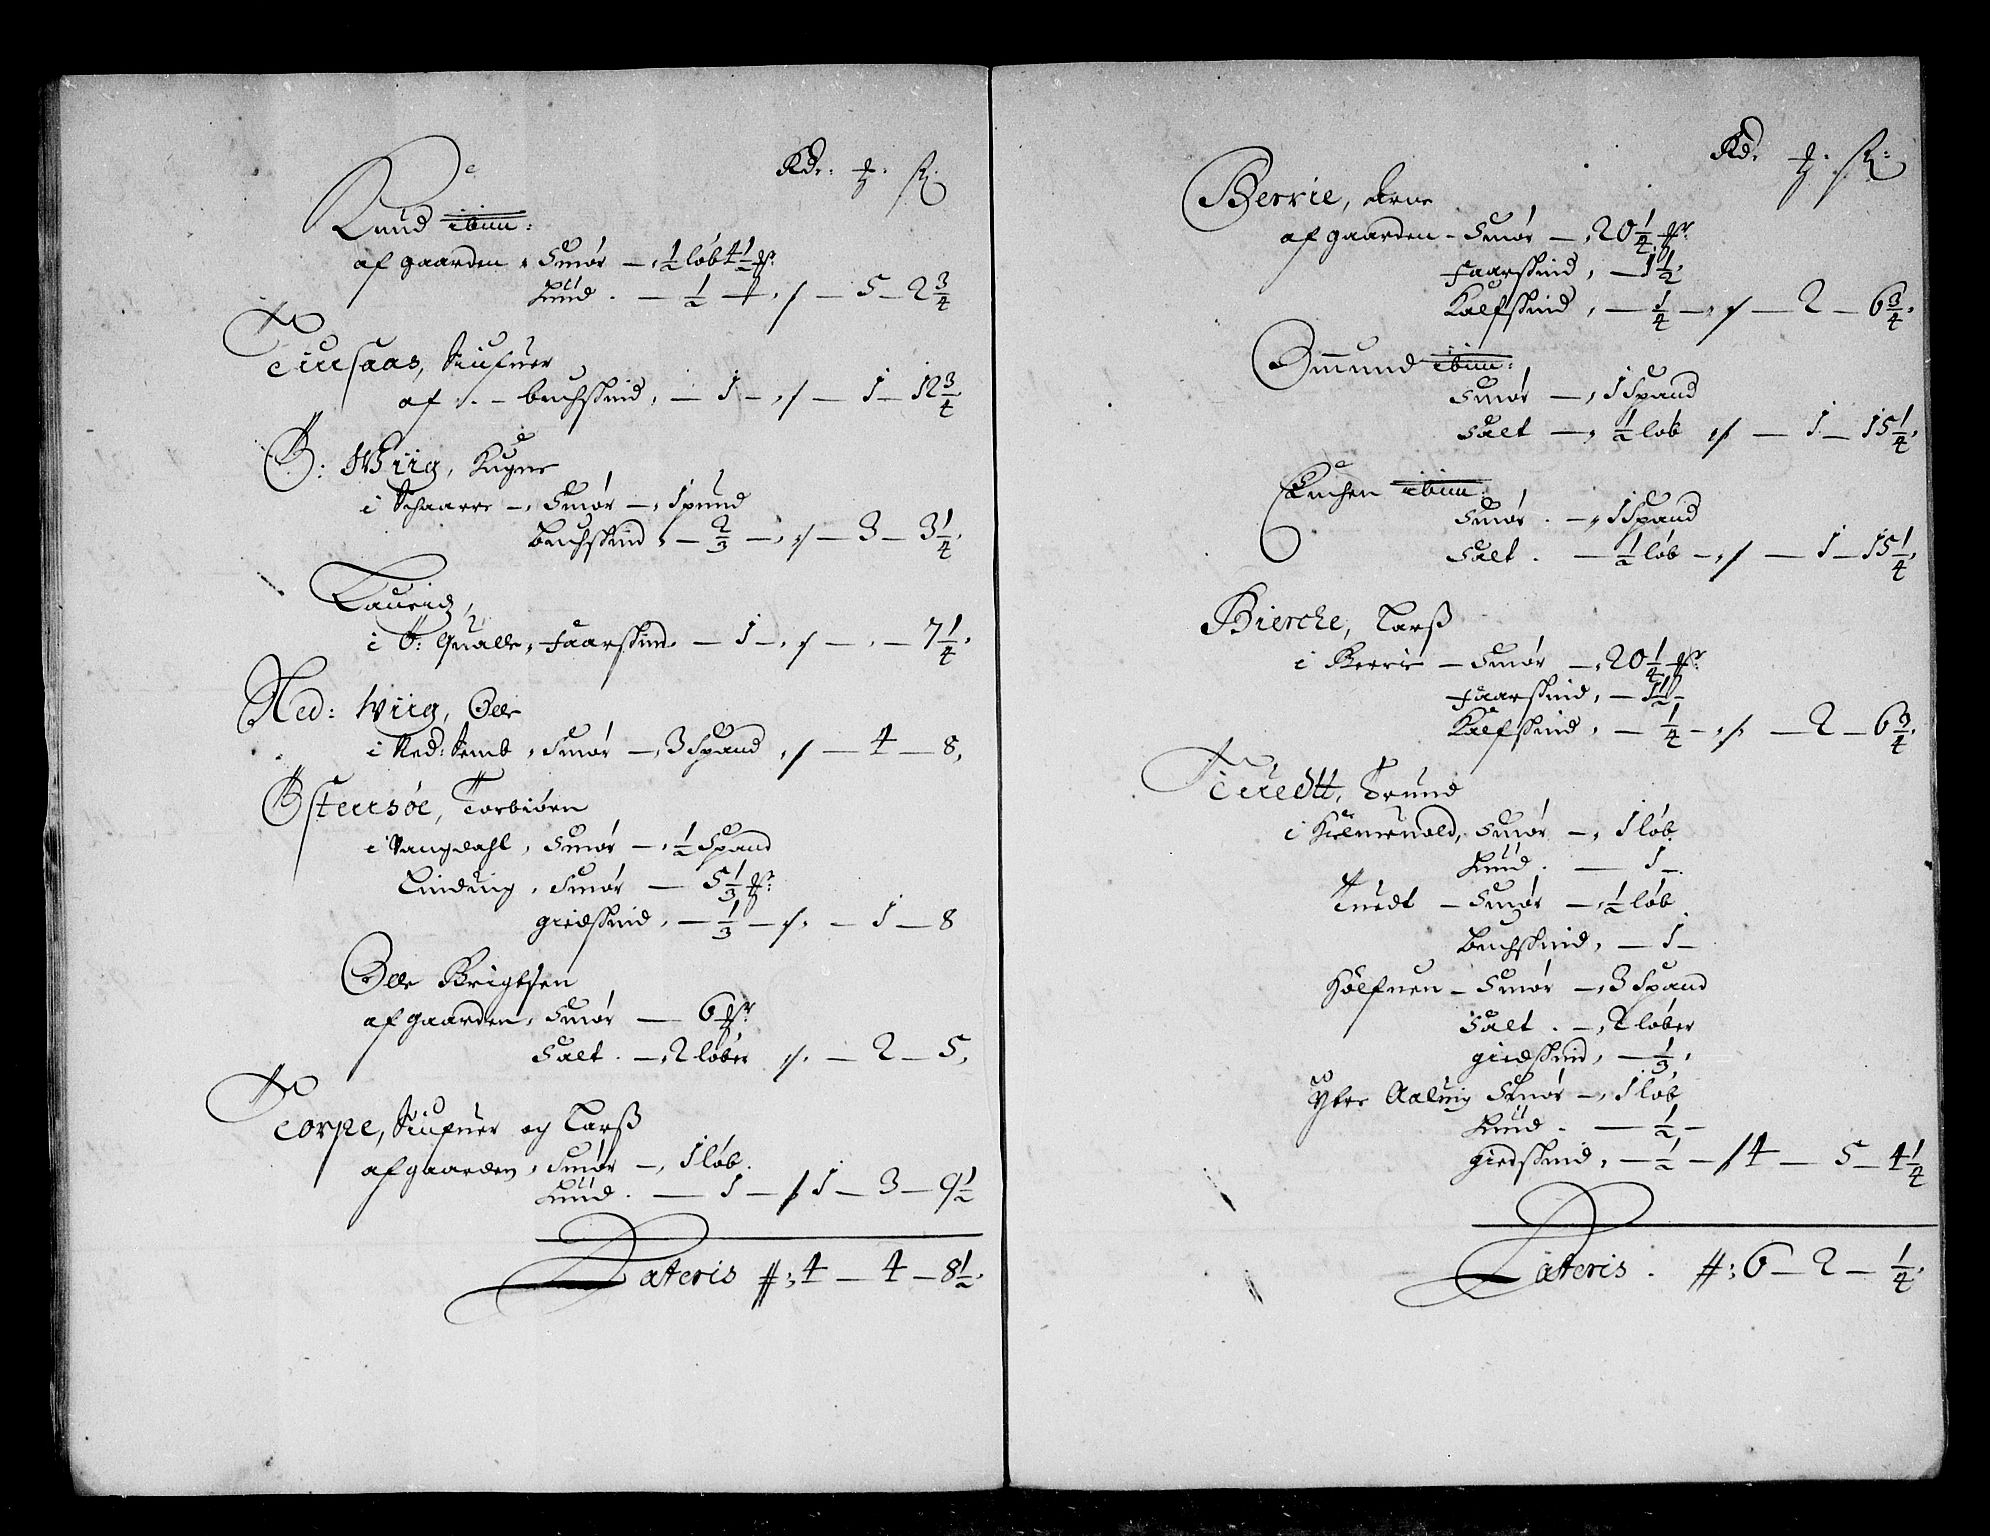 Rd: ₰: ß:
Knud ibim:
af gaarden, Smør — ½ løb 4½ ℔r
Huud. — ½ — / — 5 — 2¾
Tuesaas, Siufuer
af /. — buchskind, — 1 — / — 1 — 12¾
Ø: Wiig, Rugne
i Schaarre — Smør — 1 spund
Buchskind, — ⅔ — / — 3 — 3¼
Lauridz,
i Ø: Qualle, Faarskind — 1 — / — . — 7¼
Ned: Wiig, Olle
i Ned: Semb, Smør — 3 Spand / — 4 — 8,
Østersøe, Torbiørn
i Vangdahl, Smør — ½ Spand
Linding, Smør — 5⅓ ℔r:
giedskind, — ⅓ — / — 1 — 8
Olle Brigtsen
af gaarden, Smør — 6 ℔r
Salt. — 2 løber / — 2 — 5,
Torpe, Siufuer og Larß
af gaarden, Smør — 1 løb.
Huud. — 1 — / 1 — 3 — 9½
Lateris #: 4 — 4 — 8½,
Rd. ₰: ß:
Berrie, Arne
af gaarden — Smør — 20¼ ℔r
Faarskind, — 1½,
Kalfskind, — ¼ — / — 2 — 6¾,
Omund ibim:
Smør — 1 Spand
Salt — ½ løb / — 1 — 15¼,
Enchen ibim:
Smør. — 1 Spand
Salt. — ½ løb — / — 1 — 15¼,
Bierche, Larß
i Berrie — Smør — 20¼ ℔r
Faarskind, — 1½ —
Kalfskind, — ¼ — / — 2 — 6¾,
Tuedtt, Trund
i Hielmeuold, Smør — 1 løb.
Huud. — 1 —
Tuedt — Smør — ½ løb
Buchskind, — 1 —
Hölfuen — Smør — 3 Spand
Salt. — 2 løber
giedskind, — ⅓,
Ytre Aaluig Smør — 1 løb
Huud. — ½ —
giedskind, — ½ — / 4 — 5 — 4¼
Lateris. #: 6 — 2 — ¼,